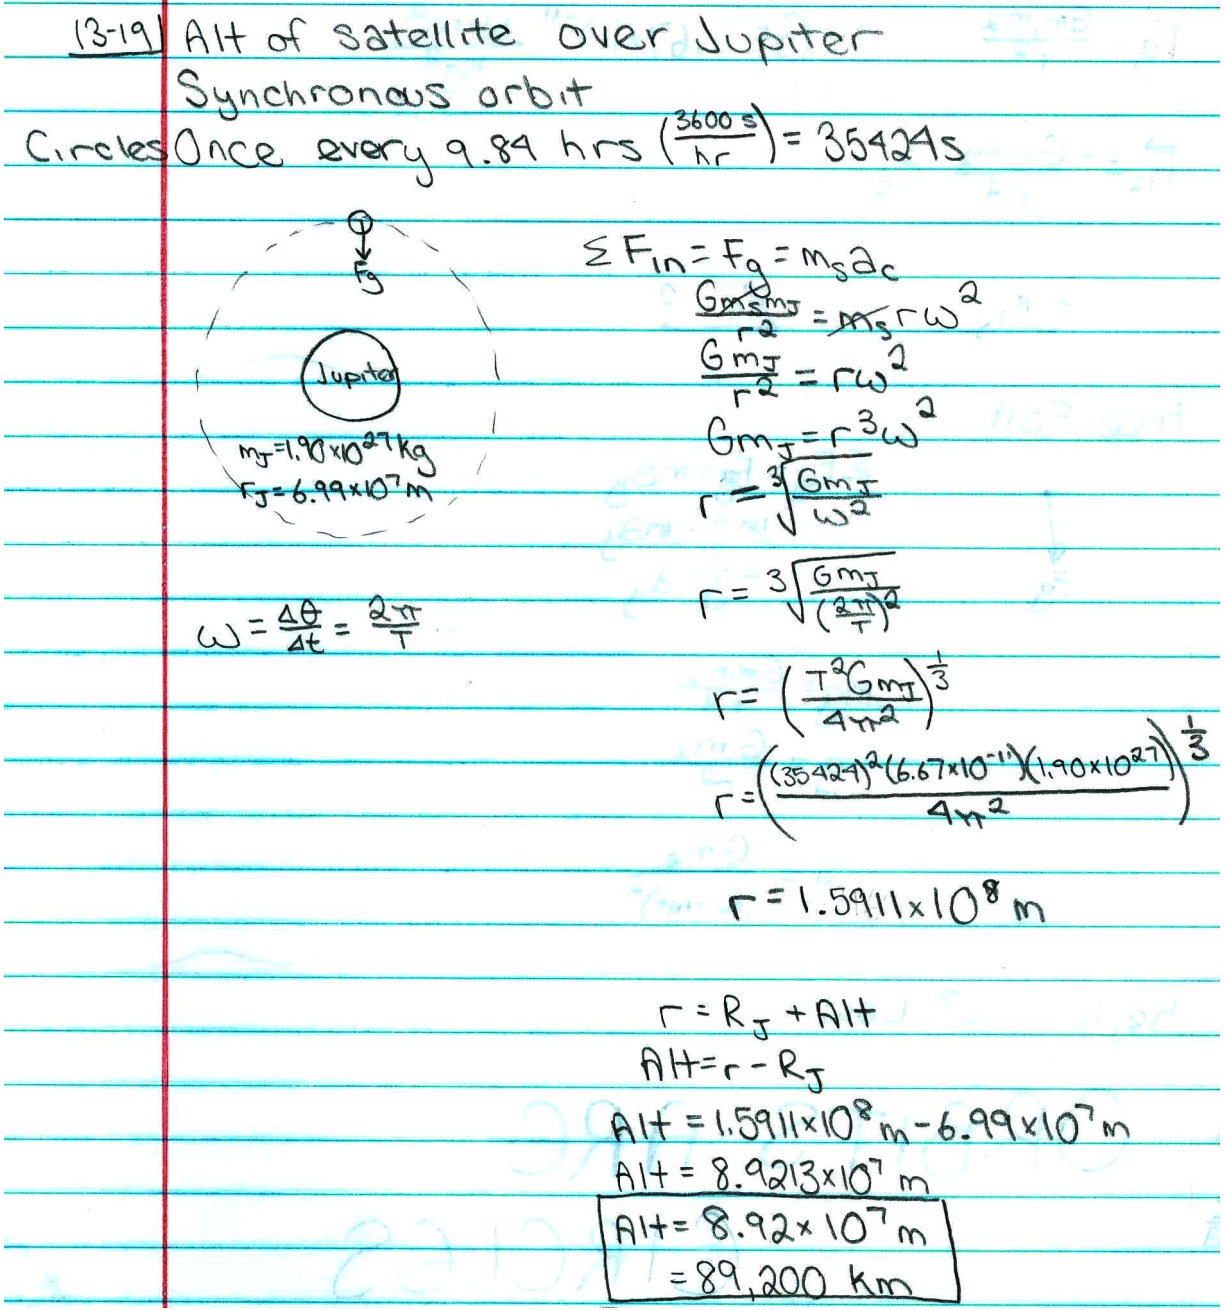 13-19 Alt of satellite over Jupiter
Synchronous orbit
Circles Once every 9.84 hrs (3600 s/hr) = 35424s
Fg
Jupiter
mJ=1.90×10²⁷kg
rJ=6.99×10⁷m
ω = Δθ/Δt = 2π/T
ΣFin = Fg = msac
Gmsmj/r² = msrω²
GmJ/r² = rω²
GmJ = r³ω²
r = ³√(GmJ/ω²)
r = ³√(GmJ/(2π/T)²)
r = (T²GmJ/4π²)^(1/3)
r = ((35424)²(6.67×10⁻¹¹)(1.90×10²⁷)/4π²)^(1/3)
r = 1.5911×10⁸ m
r = RJ + Alt
Alt = r - RJ
Alt = 1.5911×10⁸ m - 6.99×10⁷ m
Alt = 8.9213×10⁷ m
Alt = 8.92×10⁷ m
= 89,200 km